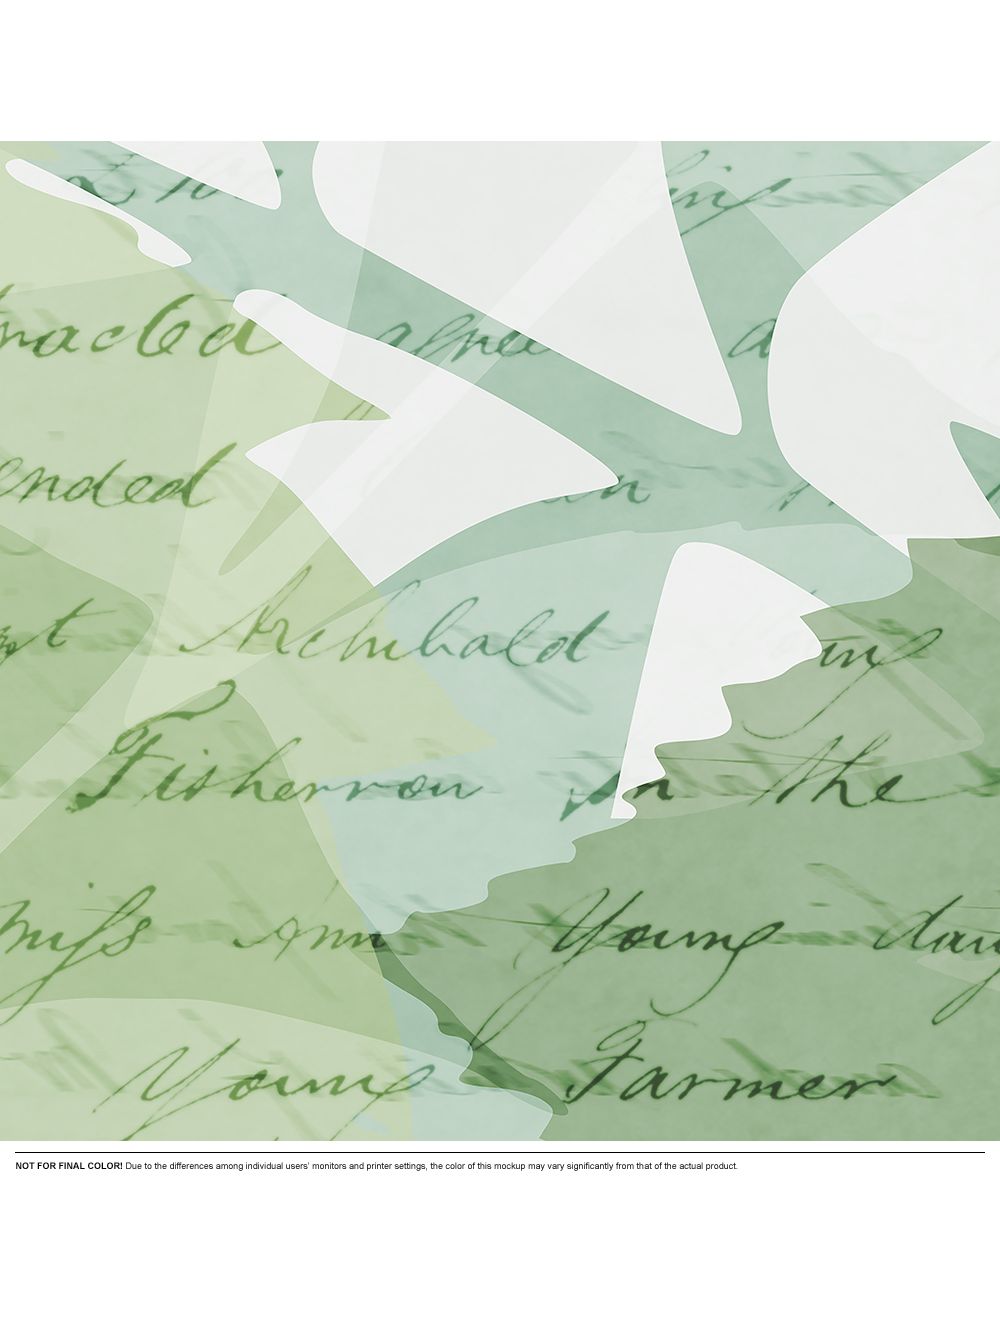 tracted agree a
ended an
Archibald
Fisherrow in the
Miss Ann Young dau
Young Farmer
NOT FOR FINAL COLOR! Due to the differences among individual users' monitors and printer settings, the color of this mockup may vary significantly from that of the actual product.